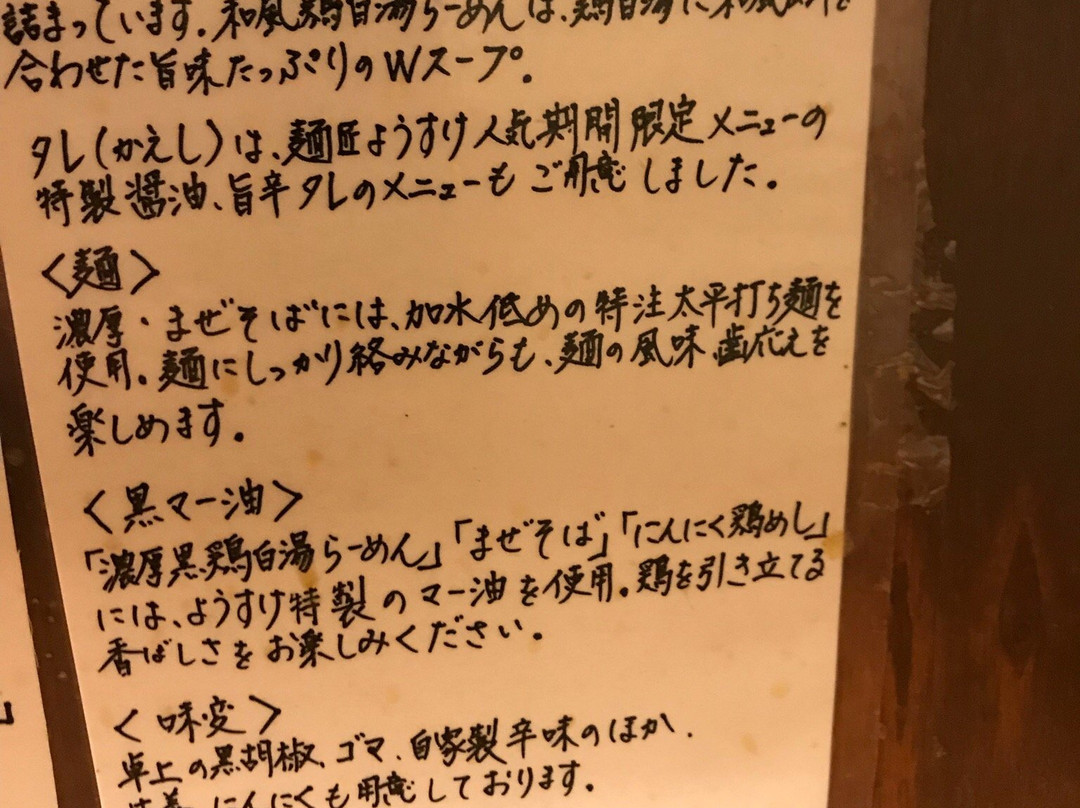 詰まっています。和風鶏白湯らーめんは、鶏白湯に和風
合わせた旨味たっぷりのWスープ。
タレ(かえし)は、麺匠ようすけ人気期間限定メニューの
特製醤油、旨辛タレのメニューもご用意しました。
〈麺〉
濃厚・まぜそばには、加水低めの特注太平打ち麺を
使用。麺にしっかり絡みながらも、麺の風味、歯応えを
楽しめます。
〈黒マー油〉
「濃厚黒鶏白湯らーめん」「まぜそば」「にんにく鶏めし」
には、ようすけ特製のマー油を使用。鶏を引き立てる
香ばしさをお楽しみください。
〈味変〉
卓上の黒胡椒、ゴマ、自家製辛味のほか、
にんにくも用意しております。